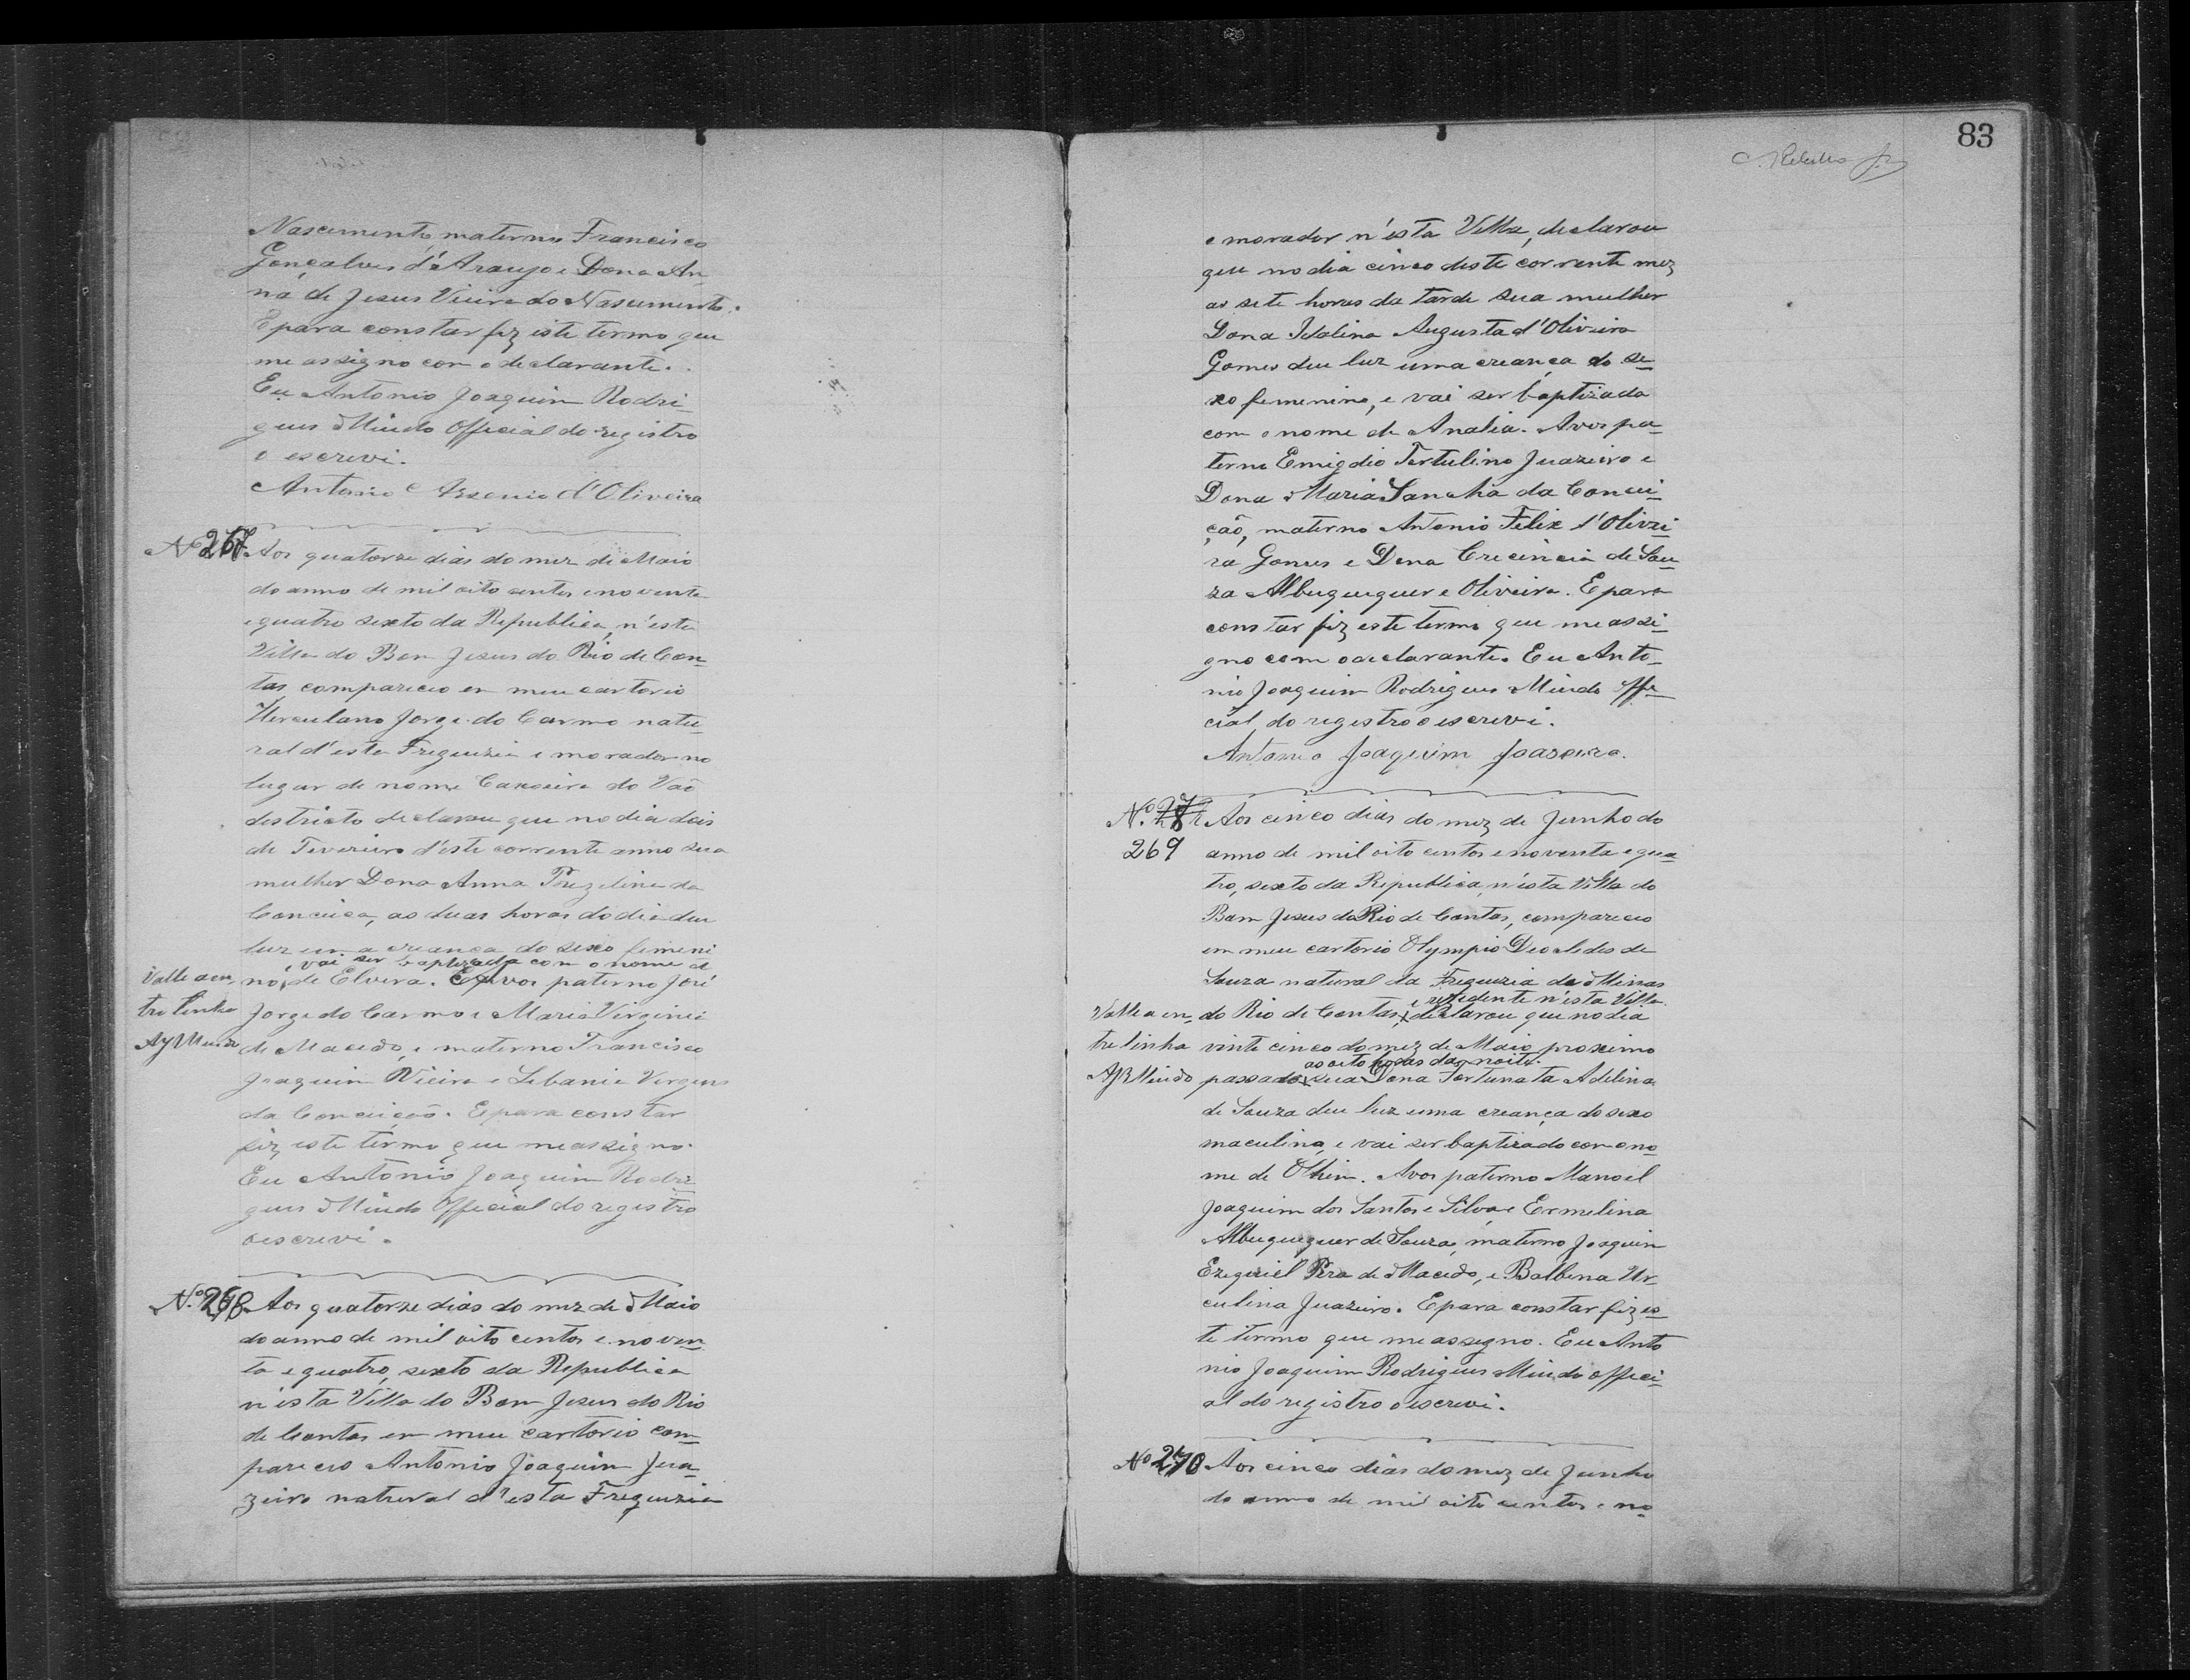 Nascimento, materno Francisco
Gonçalves d'Araujo e Dona An-
na de Jesus Vieira do Nascimento.
E para constar fiz este termo que
me assigno com o declarante.
Eu Antonio Joaquim Rodri-
gues Miudo Official do registro
o escrevi.
Antonio Arsenio d'Oliveira
Nº 267 Aos quatorze dias do mez de Maio
do anno de mil oito centos e noventa
e quatro sexto da Republica, n'esta
Villa do Bom Jesus do Rio de Con-
tas, compareceo em meu cartorio
Herculano Jorge do Carmo natu-
ral d'esta Freguezia e morador no
lugar de nome Caxoeira do Vao
destricto declarou que no dia dois
de Fevereiro d'este corrente anno sua
mulher Dona Anna da
Conceica, as duas horas do dia deu
luz uma creança do sexo femeni
e vai ser baptizada com o nome d
no, de Elvira. Avos paterno José
Valle a en-
tre linha
AJ Miudo
Jorge do Carmo e Maria Virginia
de Macedo, e materno Francisco
Joaquim Vieira e Libania Virgens
da Conceição. E para constar
fiz este termo que me assigno.
Eu Antonio Joaquim Rodri
gues Miudo Official do registro
o escrevi.
Nº 268 Aos quatorze dias do mez de Maio
do anno de mil oito centos e noven-
ta e quatro, sexto da Republica
n'esta Villa do Bom Jesus do Rio
de Contas em meu cartorio com-
pareceo Antonio Joaquim Jua-
zeiro natural d'esta Freguezia
83
e morador n'esta Villa, declarou
que no dia cinco deste corrente mez
as sete horas da tarde sua mulher
Dona Idalina Augusta d'Oliveira
Gomes deu luz uma creança do se-
xo femenino, e vai ser baptizada
com o nome de Analia. Avos pa-
terno Emigdio Tertulino Juazeiro e
Dona Maria Sancha da Concei-
ção, materno Antonio Felix d'Olivei-
ra Gomes e Dona Crecencia de Sou-
za Albuquequer e Oliveira. E para
constar fiz este termo que me assi-
gno com o declarante. Eu Anto-
nio Joaquim Rodrigues Miudo offi-
cial do registro o escrevi.
Antonio Joaquim Joaseiro.
Nº. 269 Aos cinco dias do mez de Junho do
anno de mil oito centos e noventa e qua-
tro, sexto da Republica, n'esta Villa do
Bom Jesus do Rio de Contas, compareceo
em meu cartorio Olympio Deocledes de
Souza natural da Freguezia de Minas
e residente n'esta Villa.
do Rio de Contas, declarou que no dia
Valle a en-
tre linha
AJR Miudo
vinte cinco do mez de Maio proximo
as oito horas da noite.
passado, sua Dona Fortunata Adelina
de Souza deu luz uma creança do sexo
maculino, e vai ser baptizado com o no
me de Othin. Avos paterno Manoel
Joaquim dos Santos e Silva e Ermelina
Albuquequer de Souza, materno Joaquim
Ezequiel Pera de Macedo, e Balbina Ur-
culina Juazeiro. E para constar fiz es-
te termo que me assegno. Eu Anto
nio Joaquim Rodrigues Miudo offici-
al do registro o escrevi.
Nº 270 Aos cinco dias do mez de Junho
do anno de mil oito centos e no-